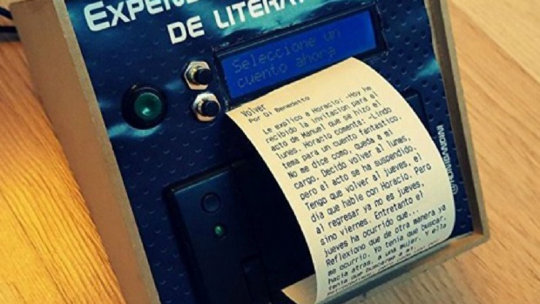 EXPEN
DE LITERAT
Seleccione un
cuento ahora
Volver
Por Di Benedetto
Le explico a Horacio: -Hoy he
recibido la invitación para el
acto de Manuel que se hizo el
lunes. Horacio comenta: -Lindo
tema para un cuento fantástico.
No me dice como, queda a mi
cargo. Decido volver al lunes,
pero el acto se ha suspendido.
Tengo que volver al jueves, el
día que hable con Horacio. Pero
al regresar ya no es jueves,
sino viernes. Entretanto el
jueves ha ocurrido que...
Reflexiono que de otra manera ya
me ocurrio. Yo tenia que buscar,
hacia atras, a una mujer, y ella
tenia que buscarme a mi